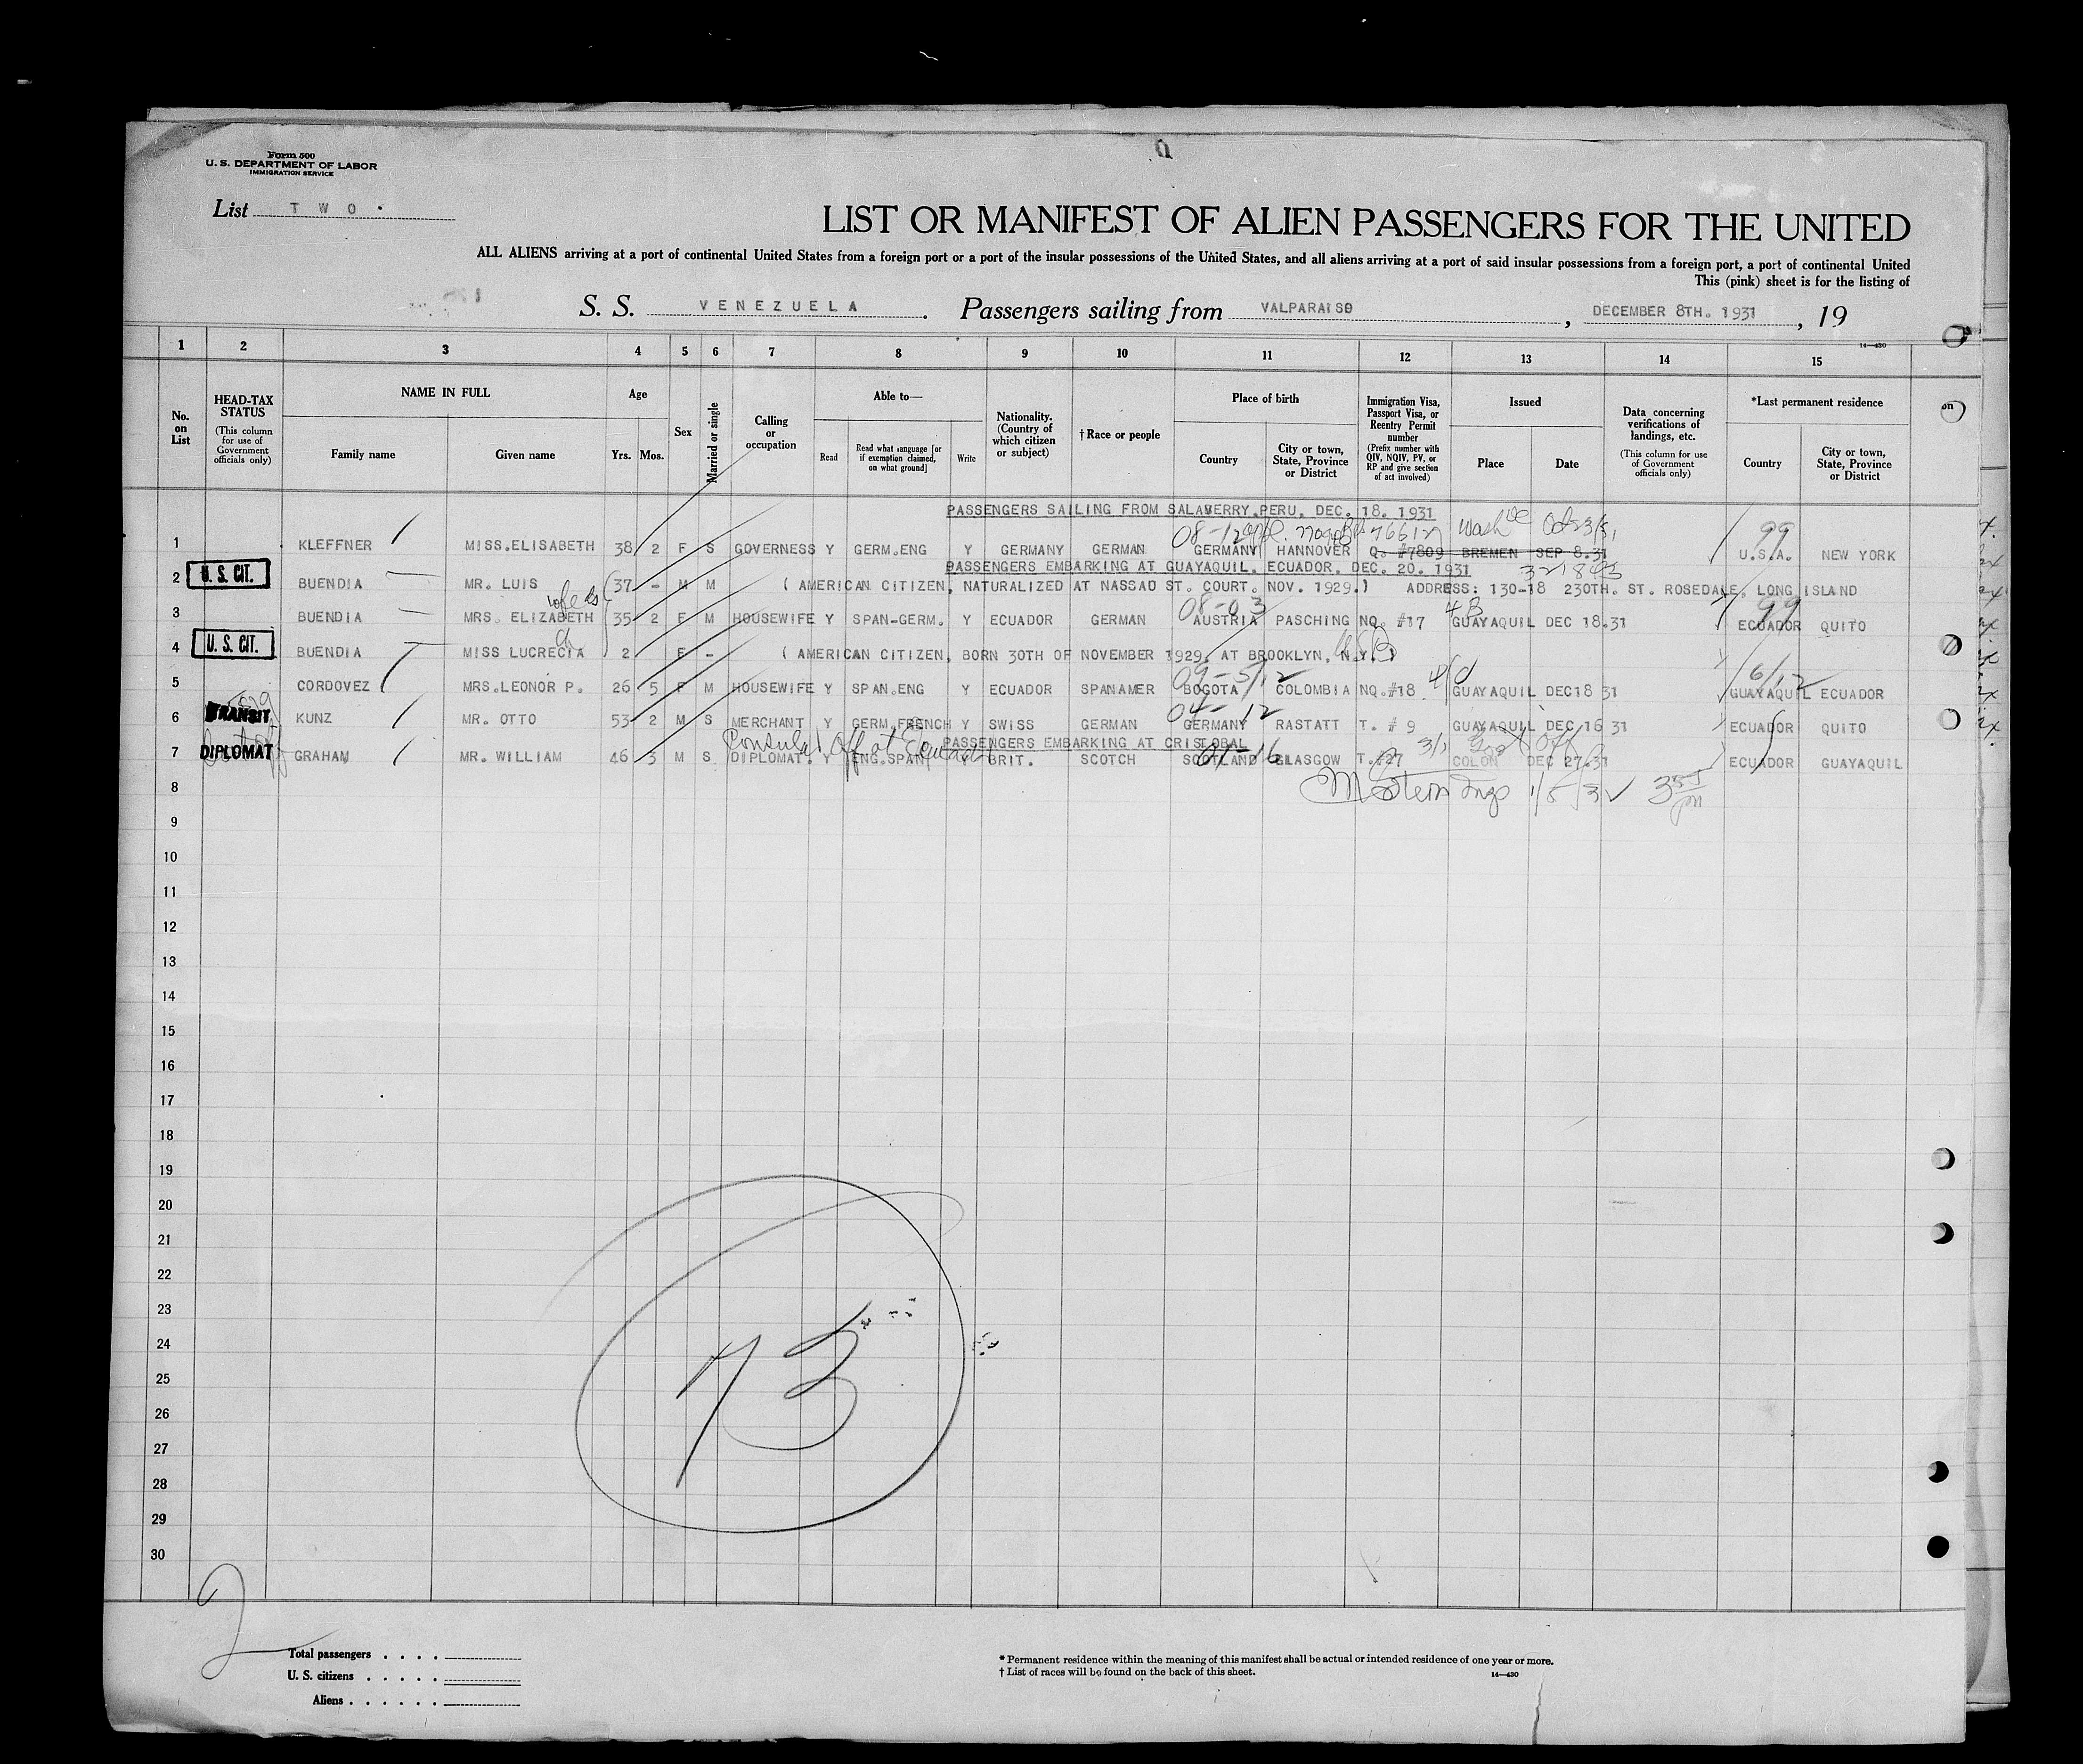 Form 500
U. S. DEPARTMENT OF LABOR
IMMIGRATION SERVICE
List TWO.
LIST OR MANIFEST OF ALIEN PASSENGERS FOR THE UNITED
ALL ALIENS arriving at a port of continental United States from a foreign port or a port of the insular possessions of the United States, and all aliens arriving at a port of said insular possessions from a foreign port, a port of continental United
This (pink) sheet is for the listing of
S. S. VENEZUELA. Passengers sailing from VALPARAISO, DECEMBER 8TH. 1931, 19
14—430
1 2 3 4 5 6 7 8 9 10 11 12 13 14 15
No. on List
HEAD-TAX STATUS (This column for use of Government officials only)
NAME IN FULL
Family name Given name
Age
Yrs. Mos.
Sex
Married or single
Calling or occupation
Able to—
Read Read what language [or if exemption claimed, on what ground] Write
Nationality. (Country of which citizen or subject)
†Race or people
Place of birth
Country City or town, State, Province or District
Immigration Visa, Passport Visa, or Reentry Permit number (Prefix number with QIV, NQIV, PV, or RP and give section of act involved)
Issued
Place Date
Data concerning verifications of landings, etc. (This column for use of Government officials only)
*Last permanent residence
Country City or town, State, Province or District
PASSENGERS SAILING FROM SALAVERRY.PERU. DEC. 18. 1931
08-12 76612 Wash DC Oct 23/31 99
1 KLEFFNER MISS.ELISABETH 38 2 F S GOVERNESS Y GERM.ENG Y GERMANY GERMAN GERMANY HANNOVER Q. #7809 BREMEN SEP 8.31 U.S.A. NEW YORK
PASSENGERS EMBARKING AT GUAYAQUIL. ECUADOR. DEC. 20. 1931
2 U. S. CIT. BUENDIA MR. LUIS 37 - M M ( AMERICAN CITIZEN, NATURALIZED AT NASSAU ST. COURT. NOV. 1929.) ADDRESS: 130-18 230TH. ST. ROSEDALE, LONG ISLAND
08-03 4B 99
3 BUENDIA MRS. ELIZABETH 35 2 F M HOUSEWIFE Y SPAN-GERM. Y ECUADOR GERMAN AUSTRIA PASCHING NQ. #17 GUAYAQUIL DEC 18.31 ECUADOR QUITO
4 U. S. CIT. BUENDIA MISS LUCRECIA 2 F - ( AMERICAN CITIZEN, BORN 30TH OF NOVEMBER 1929, AT BROOKLYN, N.Y.)
6/12
5 CORDOVEZ MRS.LEONOR P. 26 5 F M HOUSEWIFE Y SPAN.ENG Y ECUADOR SPANAMER BOGOTA COLOMBIA NQ.#18 GUAYAQUIL DEC18 31 GUAYAQUIL ECUADOR
04-12
6 TRANSIT KUNZ MR. OTTO 53 2 M S MERCHANT Y GERM.FRENCH Y SWISS GERMAN GERMANY RASTATT T. # 9 GUAYAQUIL DEC 16 31 ECUADOR QUITO
Consular Off at Ecuador PASSENGERS EMBARKING AT CRISTOBAL
7 DIPLOMAT GRAHAM MR. WILLIAM 46 3 M S DIPLOMAT. Y ENG.SPAN BRIT. SCOTCH SCOTLAND GLASGOW T.#27 COLON DEC 27.31 ECUADOR GUAYAQUIL
8
9
10
11
12
13
14
15
16
17
18
19
20
21
22
23
24
25
26
27
28
29
30
73
2
Total passengers
U. S. citizens
Aliens
* Permanent residence within the meaning of this manifest shall be actual or intended residence of one year or more.
† List of races will be found on the back of this sheet.
14—430